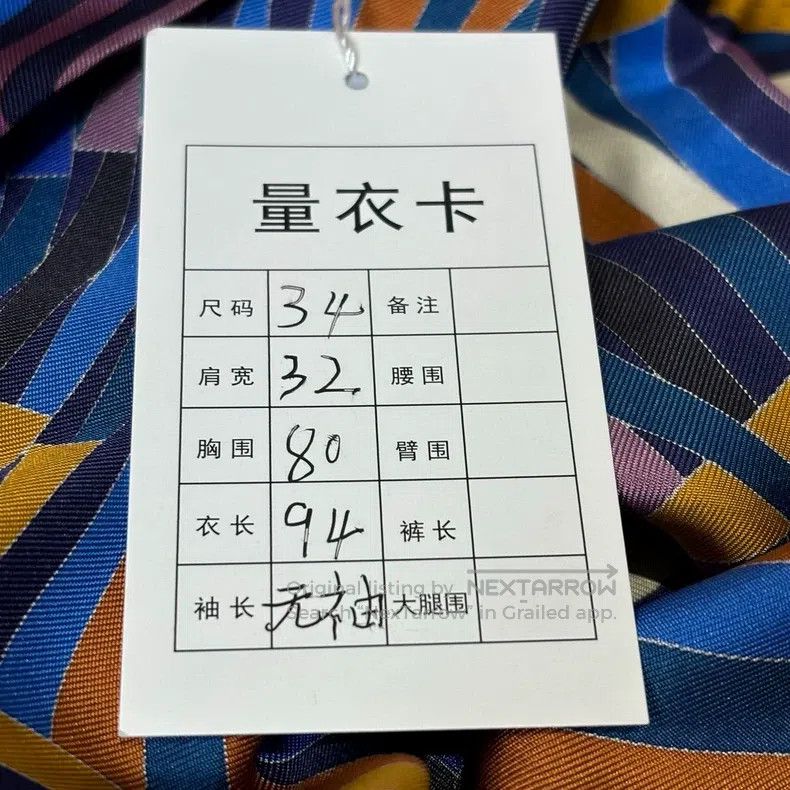 量衣卡
尺码 34 备注
肩宽 32 腰围
胸围 80 臂围
衣长 94 裤长
袖长 无袖 大腿围
Original listing by NEXTARROW
Search "NexTarrow" in Grailed app.